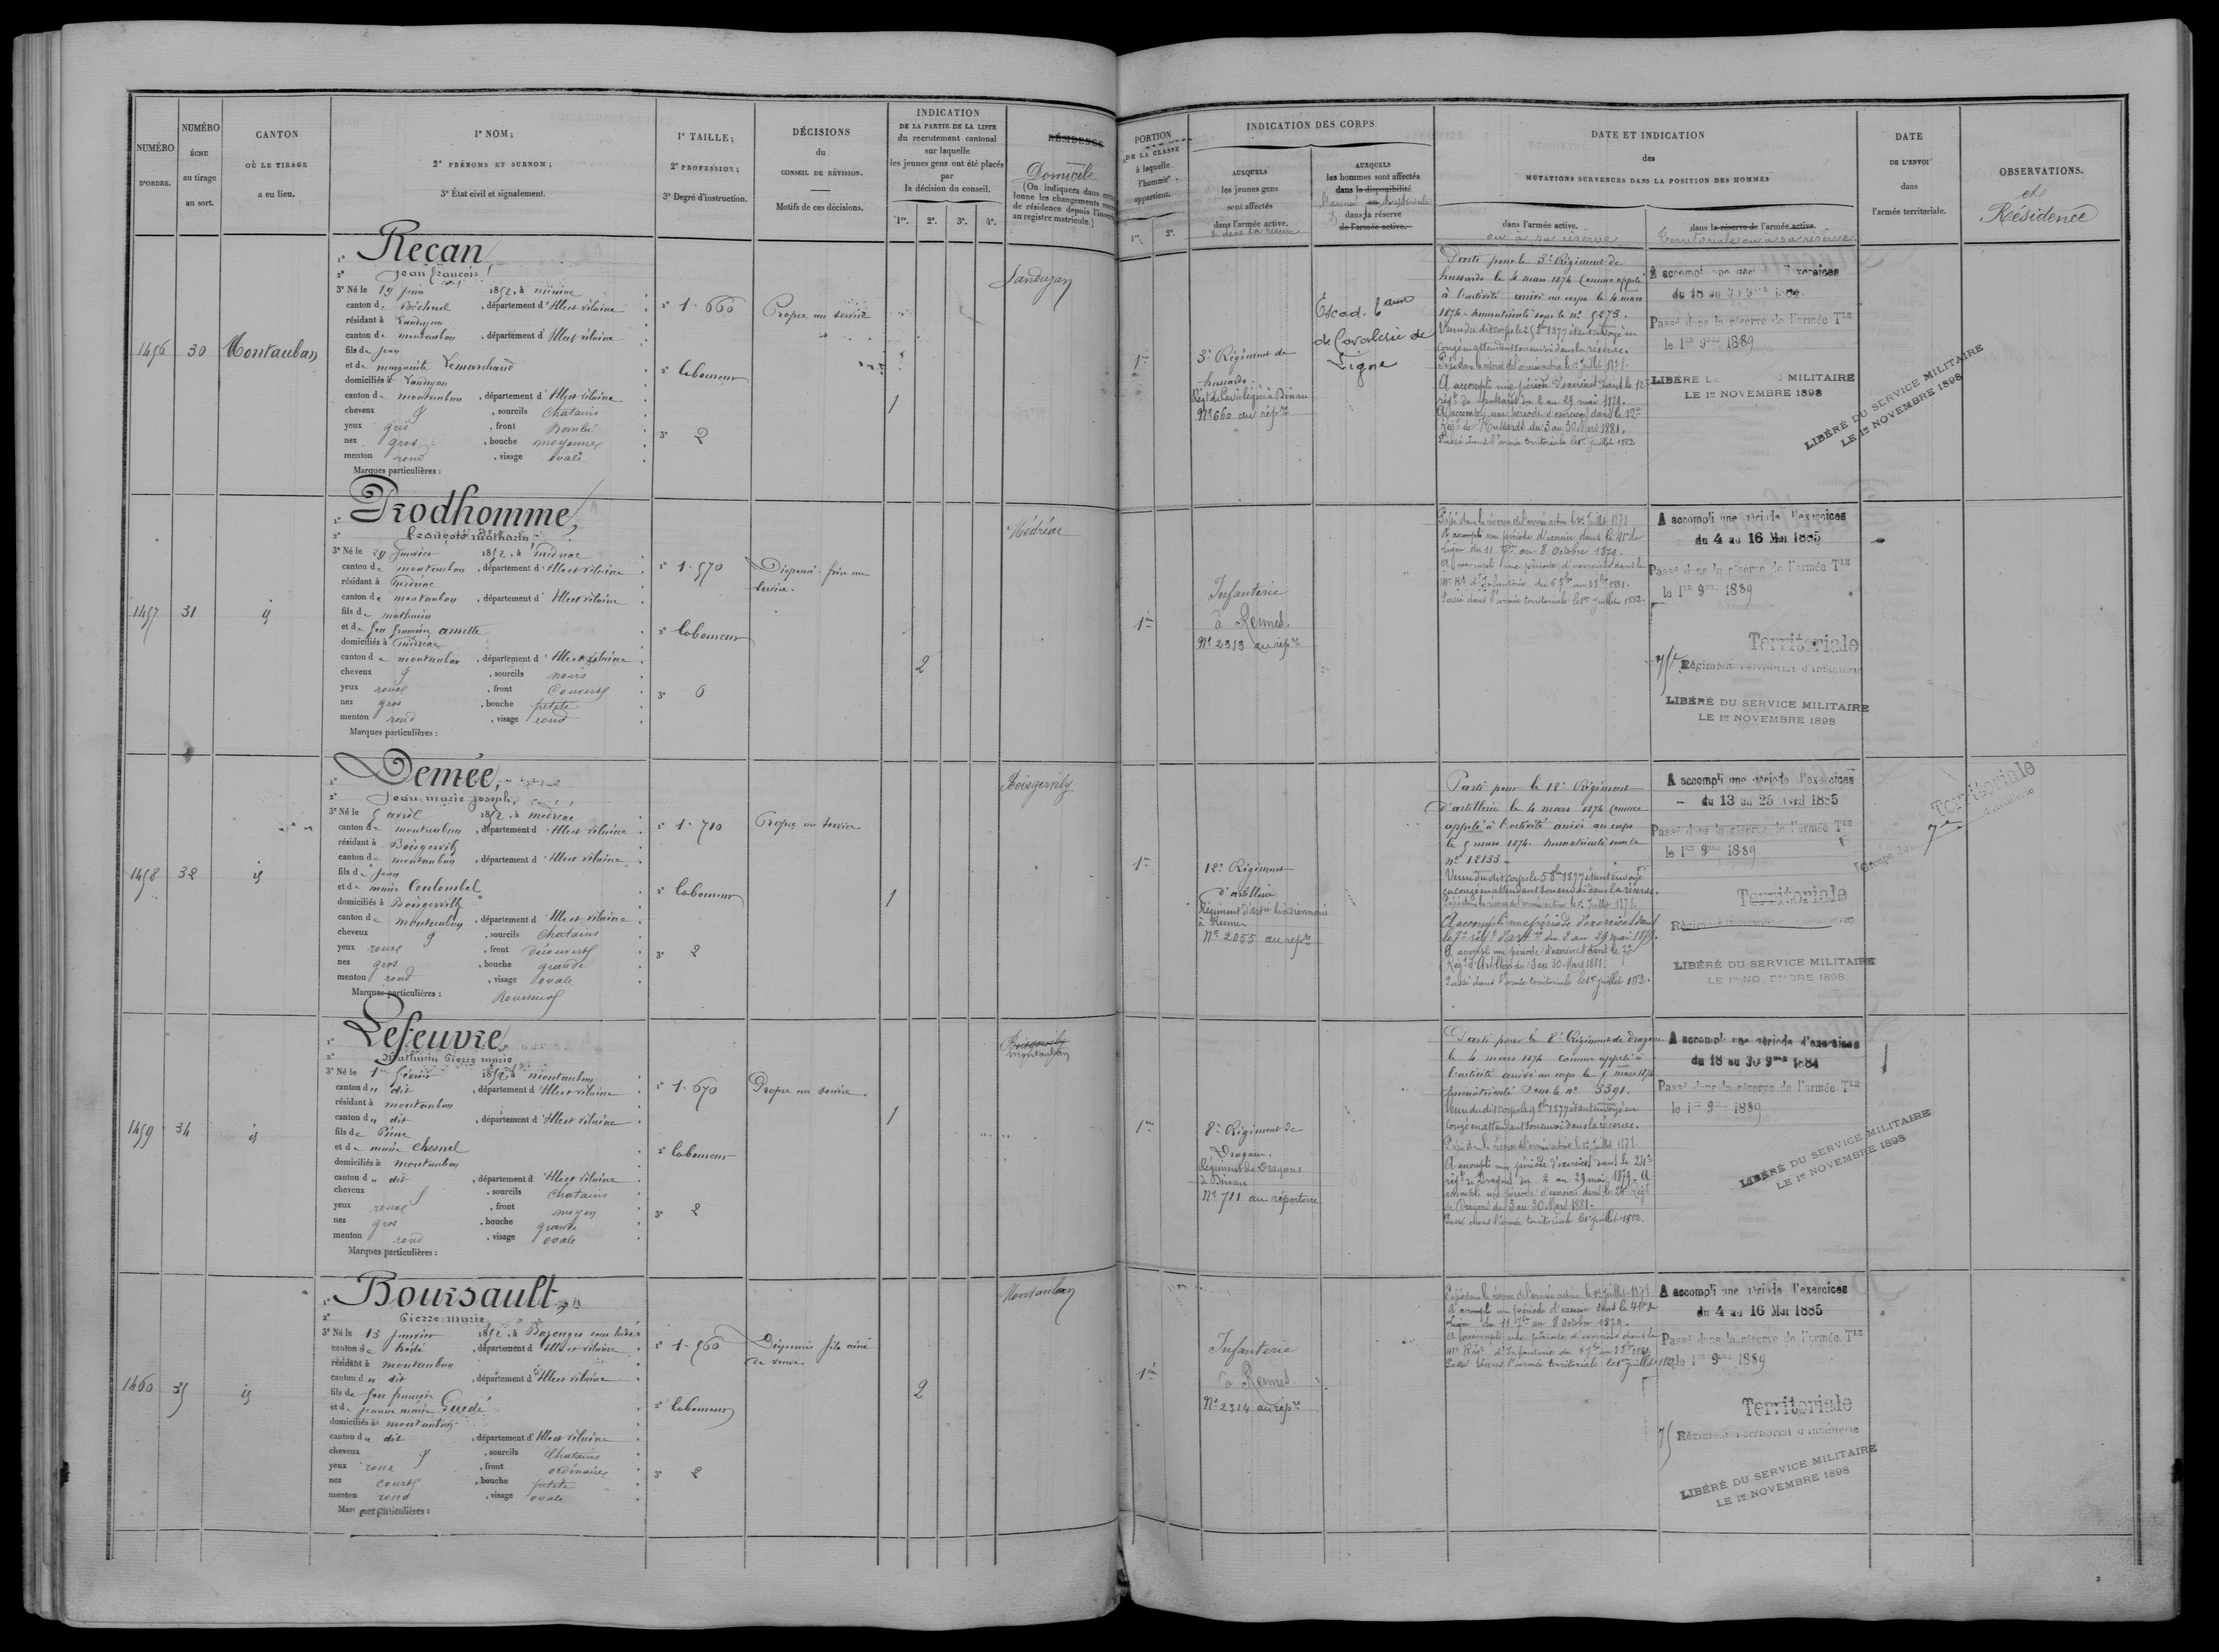 NUMÉRO
D'ORDRE.
NUMÉRO
ÉCHU
au tirage
au sort.
CANTON
OÙ LE TIRAGE
a eu lieu.
1º NOM;
2º PRÉNOMS ET SURNOM;
3º État civil et signalement.
1º TAILLE;
2º PROFESSION;
3º Degré d'instruction.
DÉCISIONS
du
CONSEIL DE RÉVISION.
Motifs de ces décisions.
INDICATION
DE LA PARTIE DE LA LISTE
du recrutement cantonal
sur laquelle
les jeunes gens ont été placés
par
la décision du conseil.
1re. 2e. 3e. 4e.
RÉSIDENCE
Domicile
(On indiquera dans
lonne les changements
de résidence depuis
au registre matricule.)
PORTION
DE LA CLASSE
à laquelle
l'homme
appartient.
1re. 2e.
INDICATION DES CORPS
AUXQUELS
les jeunes gens
sont affectés
dans l'armée active.
& dans la réserve
AUXQUELS
les hommes sont affectés
dans la disponibilité
dans la réserve
de l'armée active.
DATE ET INDICATION
des
MUTATIONS SURVENUES DANS LA POSITION DES HOMMES
dans l'armée active.
ou à sa réserve
dans la réserve de l'armée active.
Territoriale ou à sa réserve
DATE
DE L'ENVOI
dans
l'armée territoriale.
OBSERVATIONS.
et
Résidence
1456
30
Montauban
1º Recan
2º Jean François
3º Né le 19 juin 1852, à
canton de Bécherel, département d'Ille et Vilaine
résidant à Landujan
canton de Montauban, département d'Ille et Vilaine
fils de Jean
et de Marguerite Lemarchand
domiciliés à Landujan
canton de Montauban, département d'Ille et Vilaine
cheveux , sourcils Chatains
yeux gris, front Bombé
nez gros, bouche moyenne
menton rond, visage ovale
Marques particulières :
1º 1.660
2º laboureur
3º 2
Propre au service
1
Landujan
1re
3e Régiment de
hussards.
Nº 660 au répre
Escad.
de Cavalerie de
Ligne
Parti pour le 3e Régiment de
hussards le 4 mars 1874 comme appelé
à l'activité arrivé au corps le 4 mars
1874. immatriculé sous le nº 5273.
congé en attendant son envoi dans la réserve.
Passé dans la réserve de l'armée active le 1er juillet 1878.
A accompli une période d'exercices dans le 12e
régt de hussards du 2 au 29 mai 1879.
A accompli une période d'exercices dans le 12e
Régt de Hussards du 3 au 30 Mars 1881.
Passé dans l'armée territoriale le 1er juillet 1882
A accompli une période d'exercices
du 18 au 30 9bre 1884
Passé dans la réserve de l'armée Tle
le 1er 9bre 1889
LIBÉRÉ MILITAIRE
LE 1er NOVEMBRE 1898
LIBÉRÉ DU SERVICE MILITAIRE
LE 1er NOVEMBRE 1898
1457
31
id
1º Prodhomme,
2º François Mathurin
3º Né le 29 Janvier 1852, à Médréac
canton de Montauban, département d'Ille et Vilaine
résidant à Médréac
canton de Montauban, département d'Ille et Vilaine
fils de Mathurin
et de feu Françoise Amette
domiciliés à Médréac
canton de Montauban, département d'Ille et Vilaine
cheveux , sourcils noirs
yeux roux, front Couvert
nez gros, bouche petite
menton rond, visage rond
Marques particulières :
1º 1.570
2º laboureur
3º 0
Dispensé frère au
service.
2
Médréac
1re
Infanterie
à Rennes.
Nº 2313 au répre
Passé dans la réserve de l'armée active le 1er Juillet 1878
A accompli une période d'exercices dans le 41e de
Ligne du 11 7bre au 8 Octobre 1879.
A accompli une période d'exercices dans le
Passé dans l'armée territoriale le 1er juillet 1882.
A accompli une période d'exercices
du 4 au 16 Mai 1885
Passé dans la réserve de l'armée Tle
le 1er 9bre 1889
Territoriale
75e Régiment Territorial d'Infanterie
LIBÉRÉ DU SERVICE MILITAIRE
LE 1er NOVEMBRE 1898
1458
32
id
1º Demée,
2º Jean Marie Joseph,
3º Né le 5 avril 1852, à Médréac
canton de Montauban, département d'Ille et Vilaine
résidant à Boisgervily
canton de Montauban, département d'Ille et Vilaine
fils de Jean
et de Marie Coulombel
domiciliés à Boisgervily
canton de Montauban, département d'Ille et Vilaine
cheveux , sourcils Chatains
yeux roux, front découvert
nez gros, bouche grande
menton rond, visage ovale
Marques particulières : Rousseurs
1º 1.710
2º laboureur
3º 2
Propre au service
1
Boisgervily
1re
12e Régiment
d'artillerie
Régiment d'artie divisionnaire
à Rennes
Nº 2055 au répre
Parti pour le 12e Régiment
d'artillerie le 4 mars 1874 comme
appelé à l'activité arrivé au corps
le 5 mars 1874. immatriculé sous le
nº 12133.
Venu du dit corps le 5 8bre 1877 étant envoyé
en congé en attendant son envoi dans la réserve.
Passé dans la réserve de l'armée active le 1er Juillet 1878.
A accompli une période d'exercices dans
le 7e régt d'artie du 2 au 29 mai 1879.
A accompli une période d'exercices dans le 7e
Régt d'Artillerie du 3 au 30 Mars 1881.
Passé dans l'armée territoriale le 1er juillet 1882.
A accompli une période d'exercices
du 13 au 25 Avril 1885
Passé dans la réserve de l'armée Tle
le 1er 9bre 1889
Territoriale
LIBÉRÉ DU SERVICE MILITAIRE
LE 1er NOVEMBRE 1898
Territoriale
1459
34
id
1º Lefeuvre
2º Mathurin Pierre Marie
3º Né le 1er février 1852, à Montauban
canton du dit, département d'Ille et Vilaine
résidant à Montauban
canton du dit, département d'Ille et Vilaine
fils de Pierre
et de Marie Chesnel
domiciliés à Montauban
canton du dit, département d'Ille et Vilaine
cheveux , sourcils Chatains
yeux roux, front moyen
nez gros, bouche grande
menton rond, visage ovale
Marques particulières :
1º 1.670
2º laboureur
3º 2
Propre au service
1
Boisgervily
Montauban
1re
8e Régiment de
Dragons.
Régiment de Dragons
à Dinan
Nº 711 au répertoire
Parti pour le 8e Régiment de dragons
le 4 mars 1874 comme appelé à
l'activité arrivé au corps le 5 mars 1874
immatriculé sous le nº 3391.
Venu du dit corps le 9 8bre 1877 étant envoyé en
congé en attendant son envoi dans la réserve.
Passé dans la réserve de l'armée active le 1er Juillet 1878.
A accompli une période d'exercices dans le 24e
régt de Dragons du 2 au 29 mai 1879. A
accompli une période d'exercices dans le 24e Régt
de Dragons du 3 au 30 Mars 1881.
Passé dans l'armée territoriale le 1er juillet 1882.
A accompli une période d'exercices
du 18 au 30 9bre 1884
Passé dans la réserve de l'armée Tle
le 1er 9bre 1889
LIBÉRÉ DU SERVICE MILITAIRE
LE 1er NOVEMBRE 1898
1460
35
id
1º Boursault,
2º Pierre Marie
3º Né le 13 janvier 1852, à Bazouges sous hédé
canton de hédé, département d'Ille et Vilaine
résidant à Montauban
canton du dit, département d'Ille et Vilaine
fils de feu François
et de Jeanne Marie Guédé
domiciliés à Montauban
canton du dit, département d'Ille et Vilaine
cheveux , sourcils Chatains
yeux roux, front ordinaire
nez court, bouche petite
menton rond, visage ovale
Marques particulières :
1º 1.560
2º laboureur
3º 2
Dispensé fils aîné
de veuve
2
Montauban
1re
Infanterie
à Rennes
Nº 2314 au répre
Passé dans la réserve de l'armée active le 1er Juillet 1878
A accompli une période d'exercices dans le 41e de
Ligne du 11 7bre au 8 Octobre 1879.
A accompli une période d'exercices dans le
Passé dans l'armée territoriale le 1er Juillet 1882
A accompli une période d'exercices
du 4 au 16 Mai 1885
Passé dans la réserve de l'armée Tle
le 1er 9bre 1889
Territoriale
75 Régiment Territorial d'Infanterie
LIBÉRÉ DU SERVICE MILITAIRE
LE 1er NOVEMBRE 1898